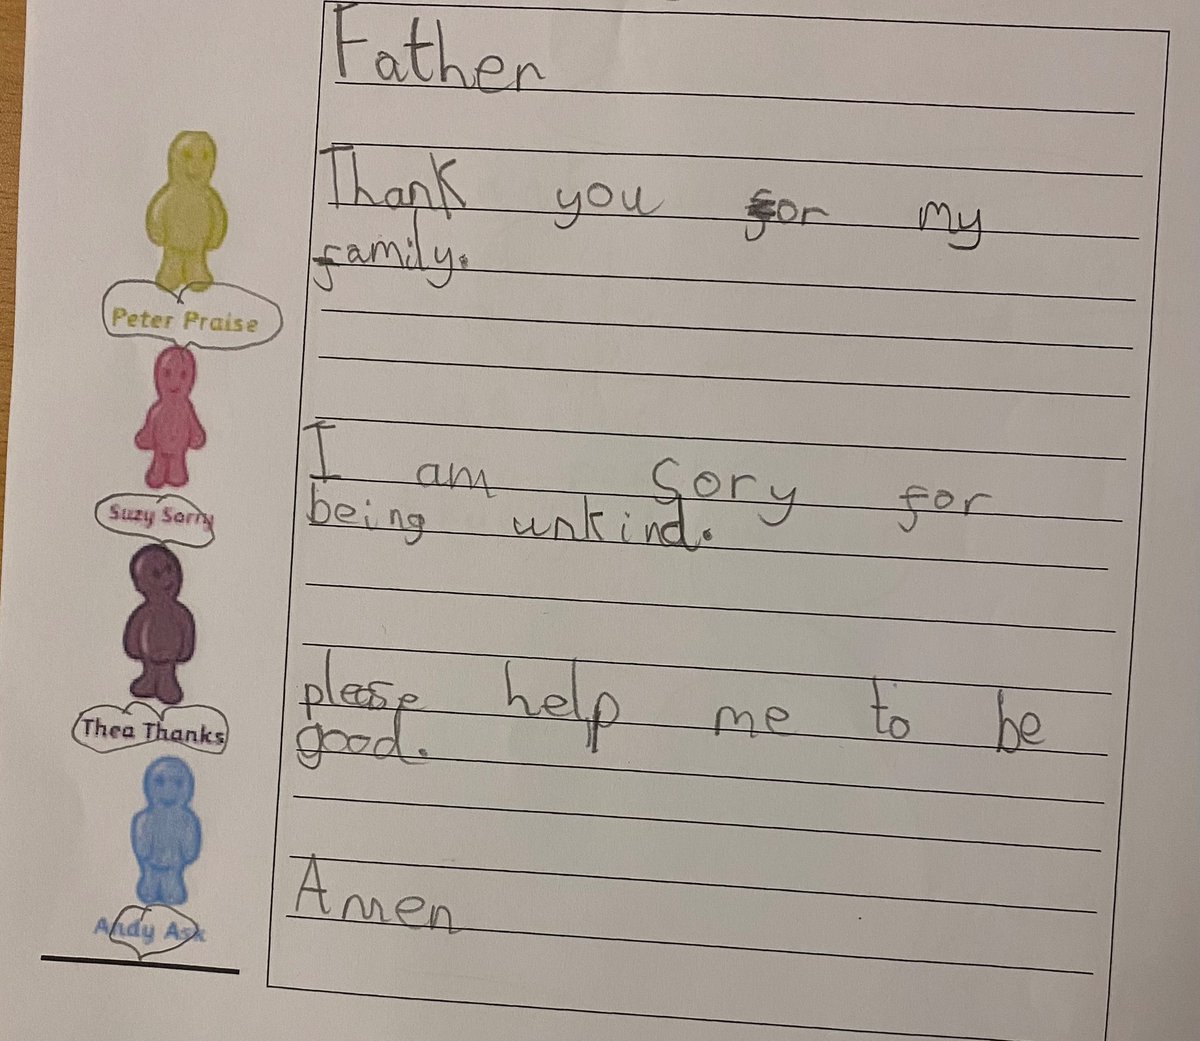 Father
Thank you for my
family.
I am Sory for
being unkind.
please help me to be
good.
Amen
Peter Praise
Suzy Sorry
Thea Thanks
Andy Ask